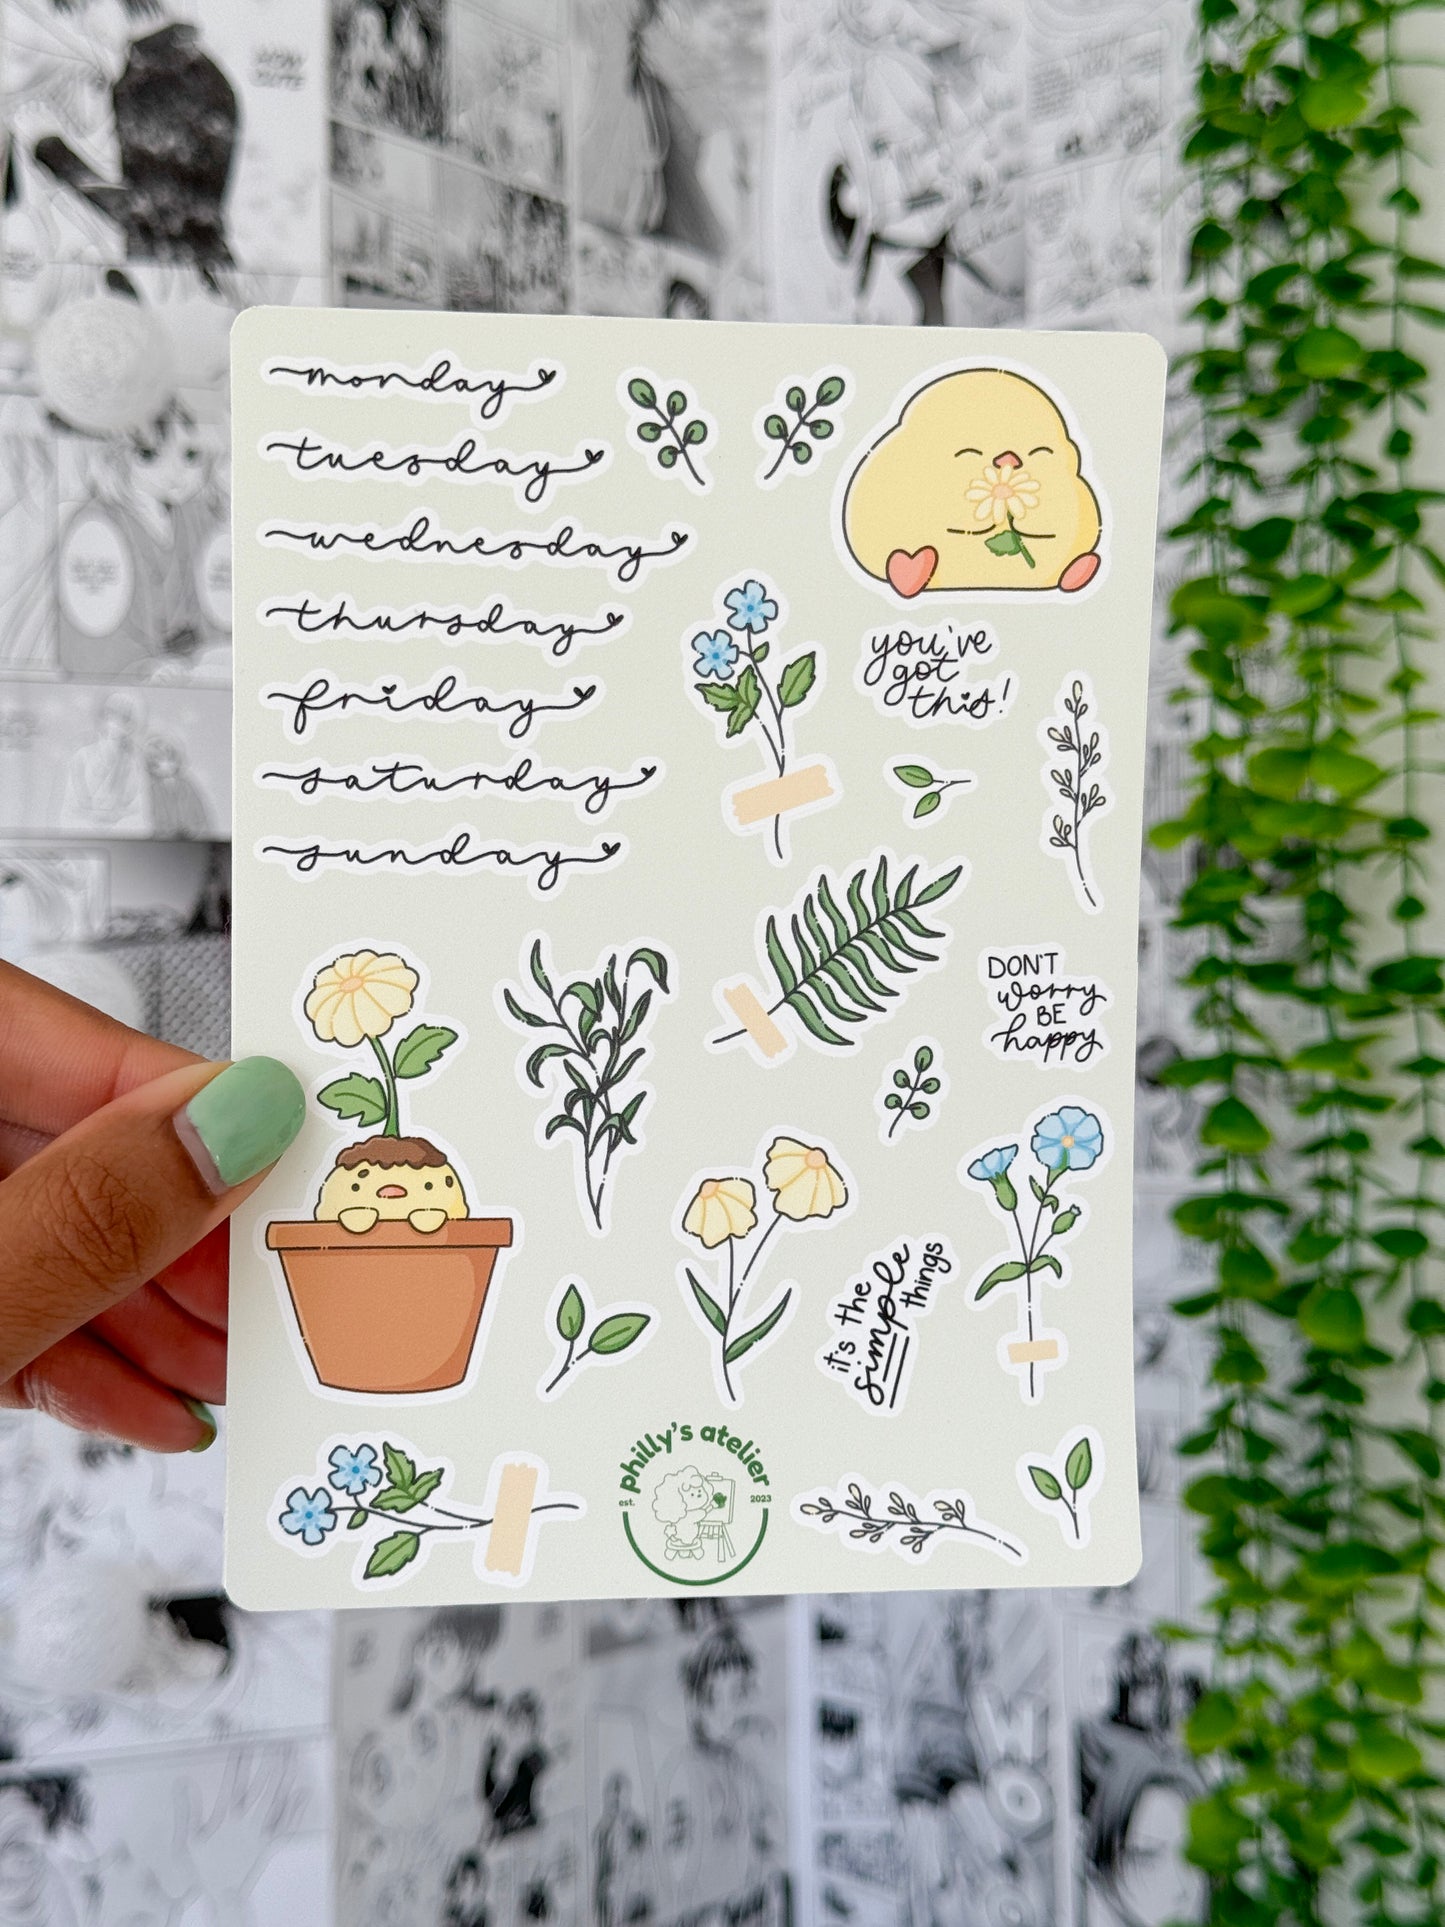 monday
tuesday
wednesday
thursday
friday
saturday
sunday
you've
got
this!
DON'T
worry
BE
happy
it's the
simple
things
philly's atelier
est. 2023